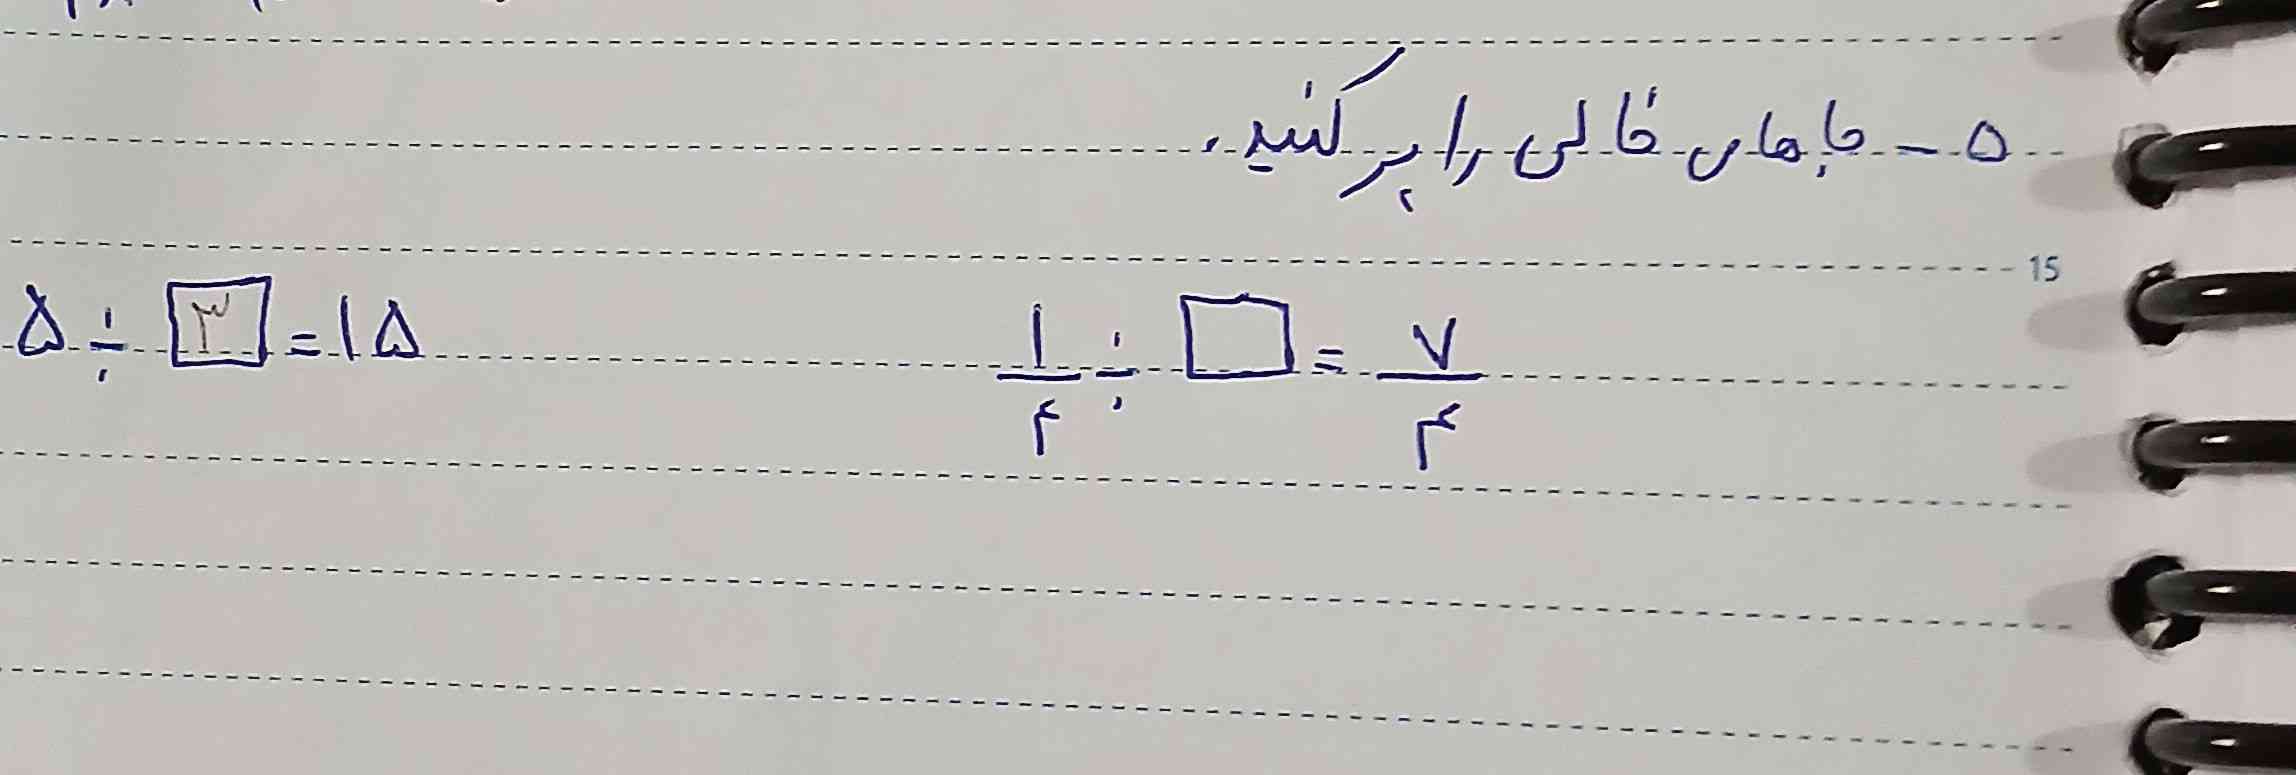 ۵ - جاهای خالی را پر کنید.
15
۵ ÷ ۳ = ۱۵
۱/۴ ÷ □ = ۷/۴